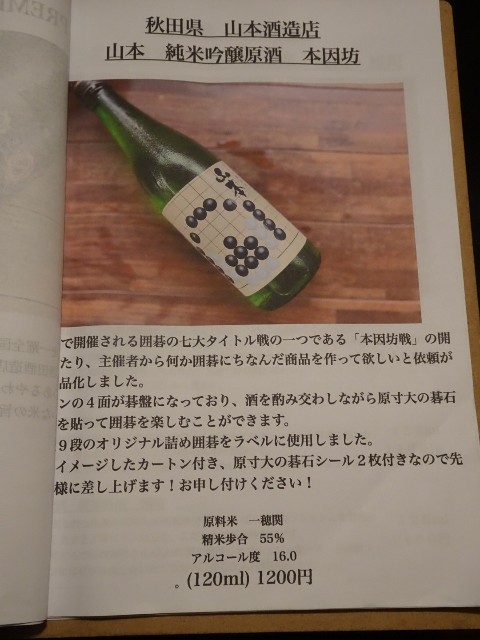 秋田県 山本酒造店
山本 純米吟醸原酒 本因坊
山本
で開催される囲碁の七大タイトル戦の一つである「本因坊戦」の開
たり、主催者から何か囲碁にちなんだ商品を作って欲しいと依頼が
品化しました。
ンの４面が碁盤になっており、酒を酌み交わしながら原寸大の碁石
を貼って囲碁を楽しむことができます。
９段のオリジナル詰め囲碁をラベルに使用しました。
イメージしたカートン付き、原寸大の碁石シール２枚付きなので先
様に差し上げます！お申し付けください！
原料米 一穂関
精米歩合 55%
アルコール度 16.0
。(120ml) 1200円